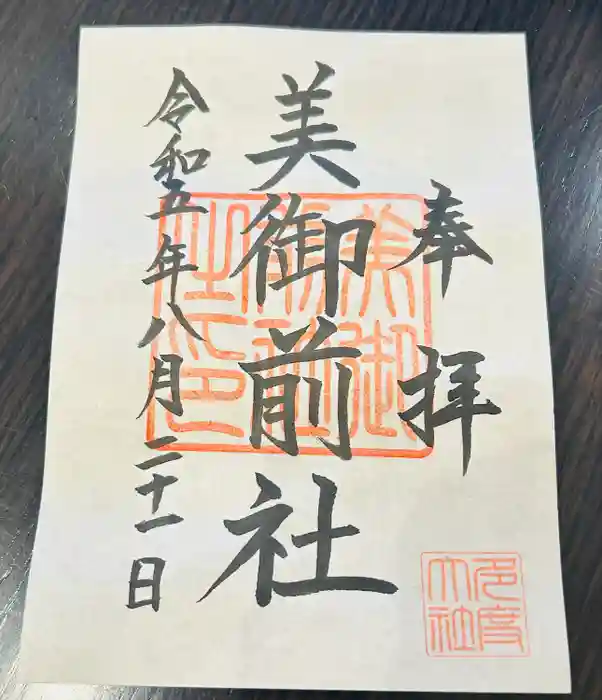 奉拝
美御前社
令和五年八月二十一日
美御前社印
多度大社